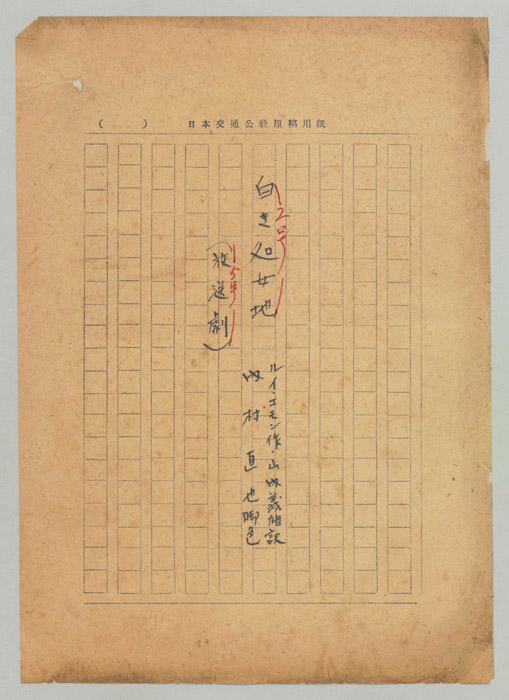 ( ) 日本交通公社原稿用紙
白き処女地
2号
(放送劇)
5号
ルイ・エモン作・山内義雄訳
内村直也脚色